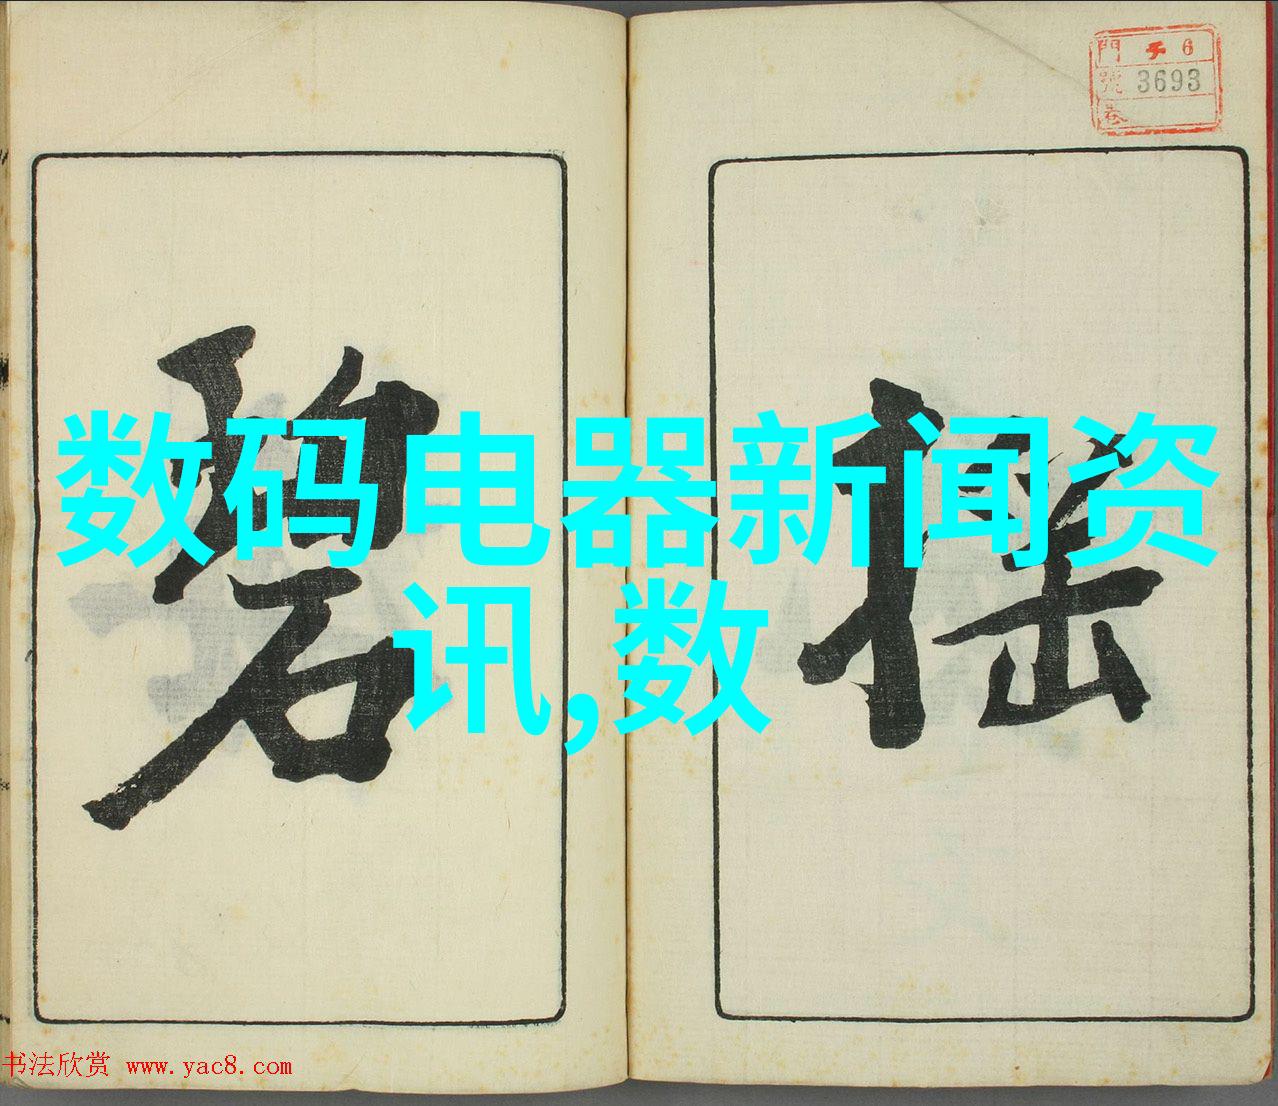 門 チ 6
號 3693
巻
搖
碧
数码电器新闻资
讯,数
书法欣赏 www.yac8.com